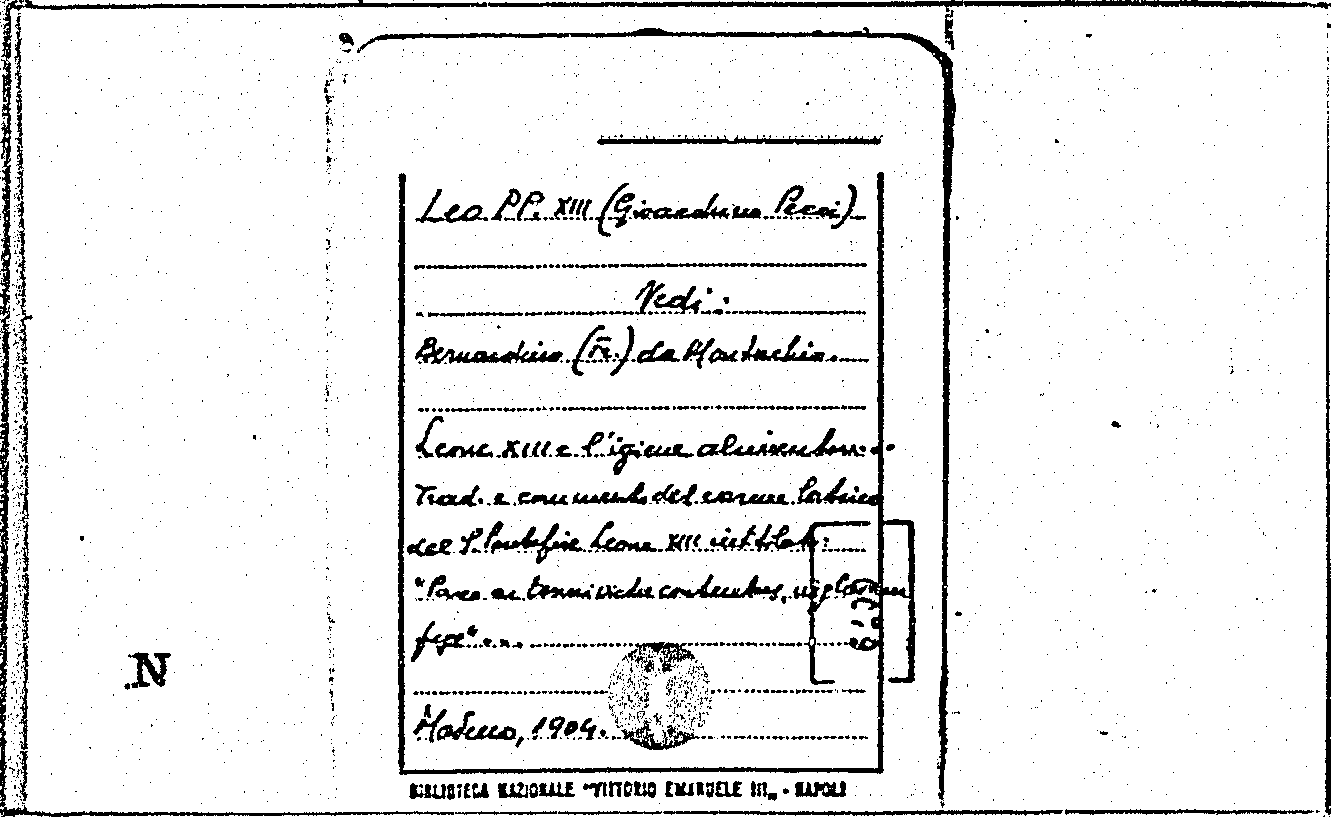 Leo PP. XIII (Gioacchino Pecci)
Vedi:
Bernardino (Fr.) da
Leone XIII e l'igiene alimentare...
Trad. e commento del carme latino
del S. Pontefice Leone XIII intitolato:
"Parco ac tenui victu contentus, ingluviem
fuge"...
1904.
N
BIBLIOTECA NAZIONALE "VITTORIO EMANUELE III" - NAPOLI